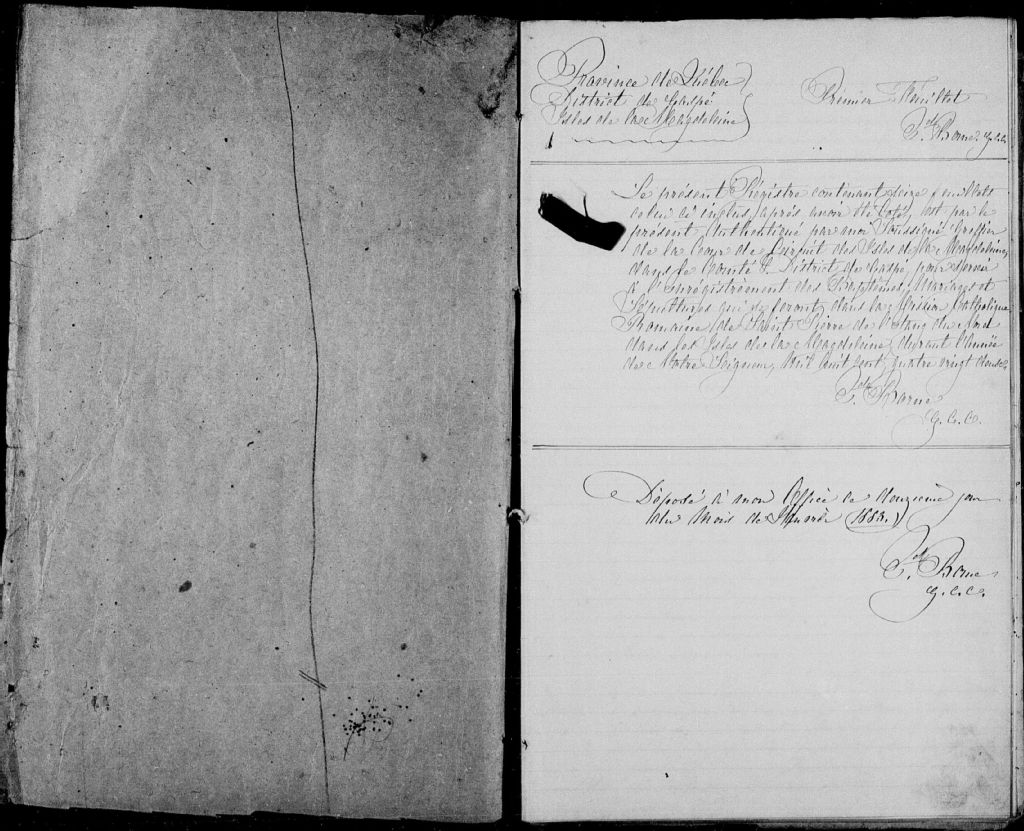 Province de Québec
District de Gaspé
Isles de la Magdeleine
Prémier Feuillet
F. Borne G.C.C.
Le présent Régistre contenant seize feuillets
celui ci inclus, après avoir été Coté, est par le
présent Authentiqué par moi Soussigné Greffier
de la Cour de Circuit des Isles de la Magdeleine,
dans le Comté & District de Gaspé, pour servir
à l'enrégistrément des Baptêmes, Mariages et
Sépultures qui se feront dans la Mission Catholique
Romaine de Saint Pierre de l'Etang du Nord
dans les Isles de la Magdeleine, durant l'Année
de Notre Seigneur, Mil huit cent quatre vingt
F. Borne
G.C.C.
Déposé à mon Office le douzième jour
du Mois de (1883.)
F. Borne
G.C.C.